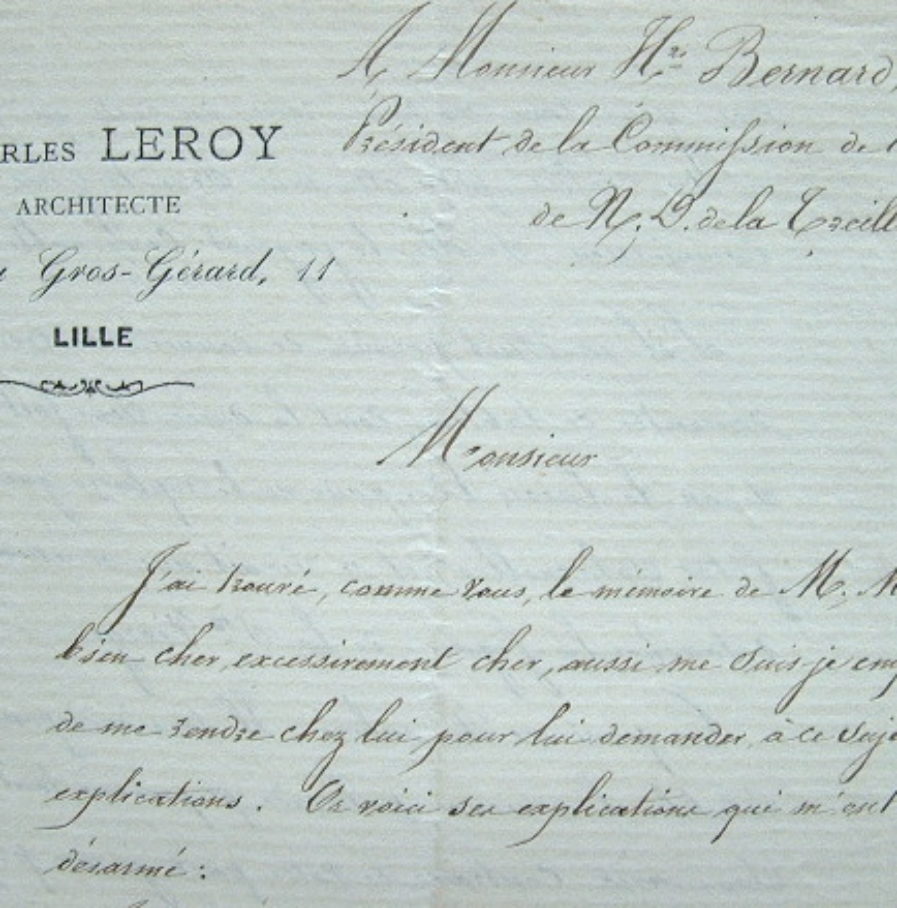 A Monsieur Hri Bernard,
Président de la Commission de l
de N. D. de la Treill
RLES LEROY
ARCHITECTE
Gros-Gérard, 11
LILLE
Monsieur
J'ai trouvé, comme vous, le mémoire de M. M
bien cher, excessivement cher, aussi me suis je emp
de me rendre chez lui pour lui demander, à ce suje
explications. Or voici ses explications qui m'ont
désarmé :